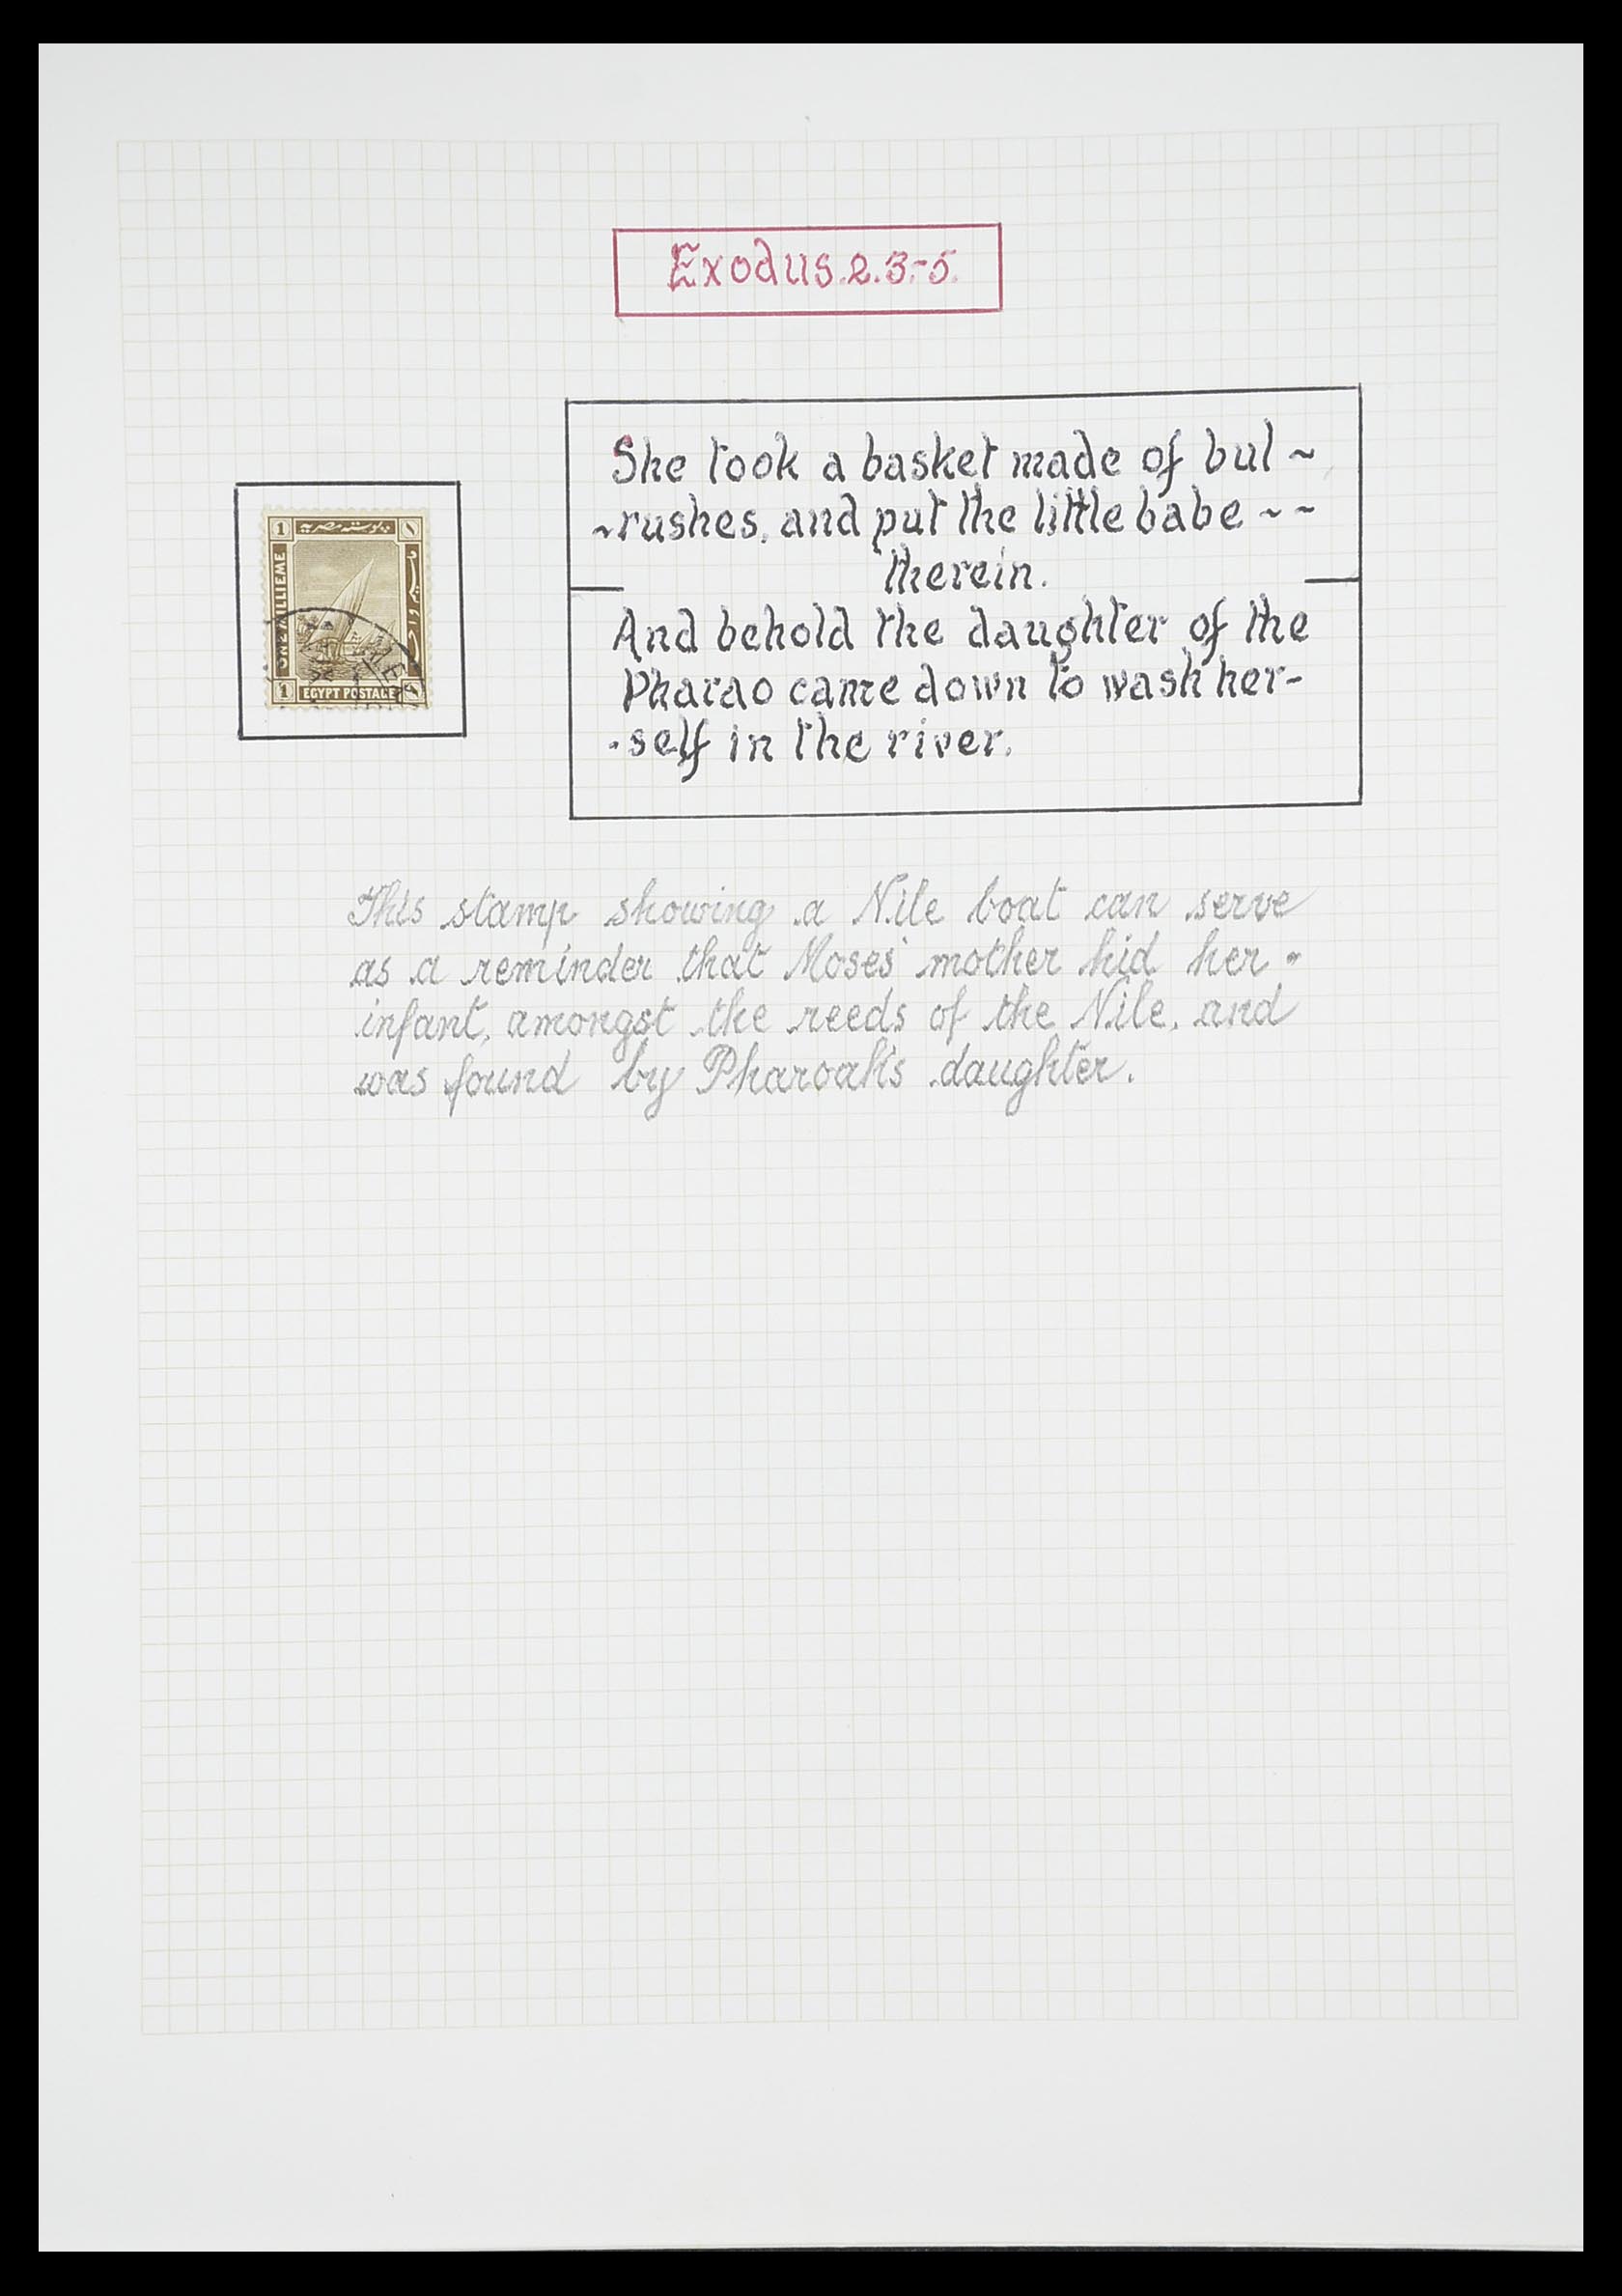 Exodus.2.3-5.
She took a basket made of bul ~
~rushes, and put the little babe ~ ~
therein.
And behold the daughter of the
Pharao came down to wash her-
-self in the river.
1
ONE MILLIEME
1 EGYPT POSTAGE
This stamp showing a Nile boat can serve
as a reminder that Moses' mother hid her -
infant, amongst the reeds of the Nile, and
was found by Pharoah's daughter.